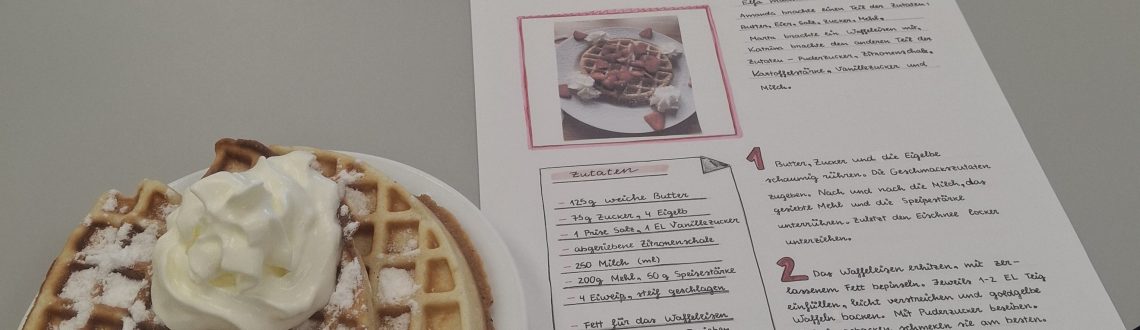 Amanda brachte einen Teil der Zutaten:
Butter, Eier, Salz, Zucker, Mehl.
Marta brachte ein Waffeleisen mit.
Katrina brachte den anderen Teil der
Zutaten – Puderzucker, Zitronenschale,
Kartoffelstärke, Vanillezucker und
Milch.
Zutaten
- 125g weiche Butter
- 75g Zucker, 4 Eigelb
- 1 Prise Salz, 1 EL Vanillezucker
- abgeriebene Zitronenschale
- 250 Milch (ml)
- 200g Mehl, 50 g Speisestärke
- 4 Eiweiß, steif geschlagen
- Fett für das Waffeleisen
1 Butter, Zucker und die Eigelbe
schaumig rühren. Die Geschmackszutaten
zugeben. Nach und nach die Milch, das
gesiebte Mehl und die Speisestärke
unterrühren. Zuletzt den Eischnee locker
unterziehen.
2 Das Waffeleisen erhitzen, mit zer-
lassenem Fett bepinseln. Jeweils 1-2 EL Teig
einfüllen, leicht verstreichen und goldgelbe
Waffeln backen. Mit Puderzucker
schmecken sie am besten.